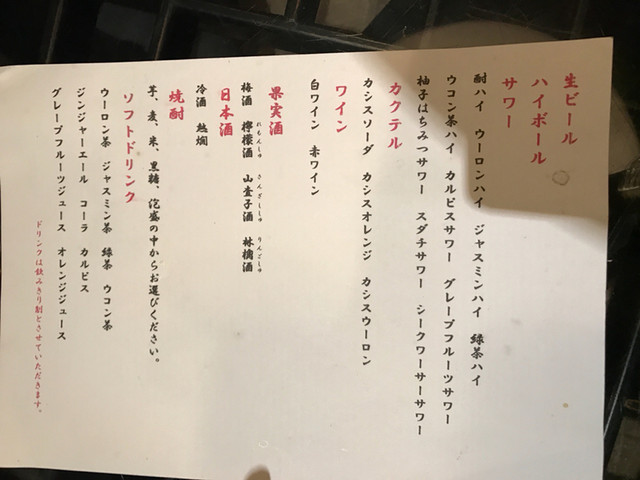 生ビール
ハイボール
サワー
酎ハイ ウーロンハイ ジャスミンハイ 緑茶ハイ
ウコン茶ハイ カルピスサワー グレープフルーツサワー
柚子はちみつサワー スダチサワー シークワーサーサワー
カクテル
カシスソーダ カシスオレンジ カシスウーロン
ワイン
白ワイン 赤ワイン
果実酒
れもんしゅ さんざししゅ りんごしゅ
梅酒 檸檬酒 山査子酒 林檎酒
日本酒
冷酒 熱燗
焼酎
芋、麦、米、黒糖、泡盛の中からお選びください。
ソフトドリンク
ウーロン茶 ジャスミン茶 緑茶 ウコン茶
ジンジャーエール コーラ カルピス
グレープフルーツジュース オレンジジュース
ドリンクは飲みきり制とさせていただきます。